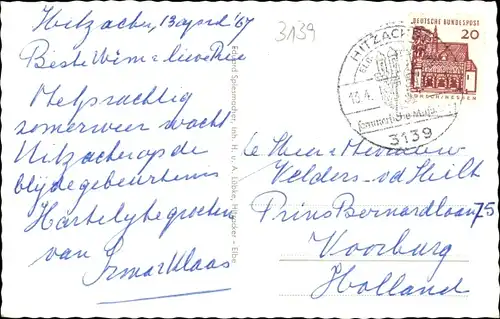 Hitzacker, 13 april '67
Beste Wim en lieve Rie
Met prachtig
zomerweer wacht
Hitzacker op de
blijde gebeurtenis
Hartelijke groeten
van
Irmar Klaas
3139
Eduard Spiermacher, Inh. H. u. A. Lübke, Hitzacker - Elbe
HITZACKER
13.4.
Sommerliche Musik
3139
DEUTSCHE BUNDESPOST
20
LORSCH/HESSEN
de Heer en Mevrouw
Velders - vd Hilt
Prins Bernardlaan 75
Voorburg
Holland